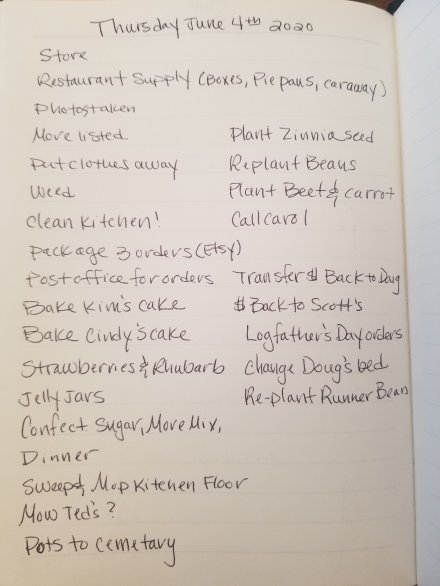 Thursday June 4th 2020
Store
Restaurant Supply (Boxes, Pie pans, caraway)
Photos taken
More listed
Put clothes away
Weed
Clean Kitchen!
Package 3 orders (Etsy)
Post office for orders
Bake Kim's cake
Bake Cindy's cake
Strawberries & Rhubarb
Jelly Jars
Confect Sugar, More Mix,
Dinner
Sweep & Mop Kitchen Floor
Mow Ted's?
Pots to cemetary
Plant Zinnia seed
Replant Beans
Plant Beet & carrot
Call carol
Transfer $ Back to Doug
$ Back to Scott's
Log father's Day orders
Change Doug's bed
Re-plant Runner Bean